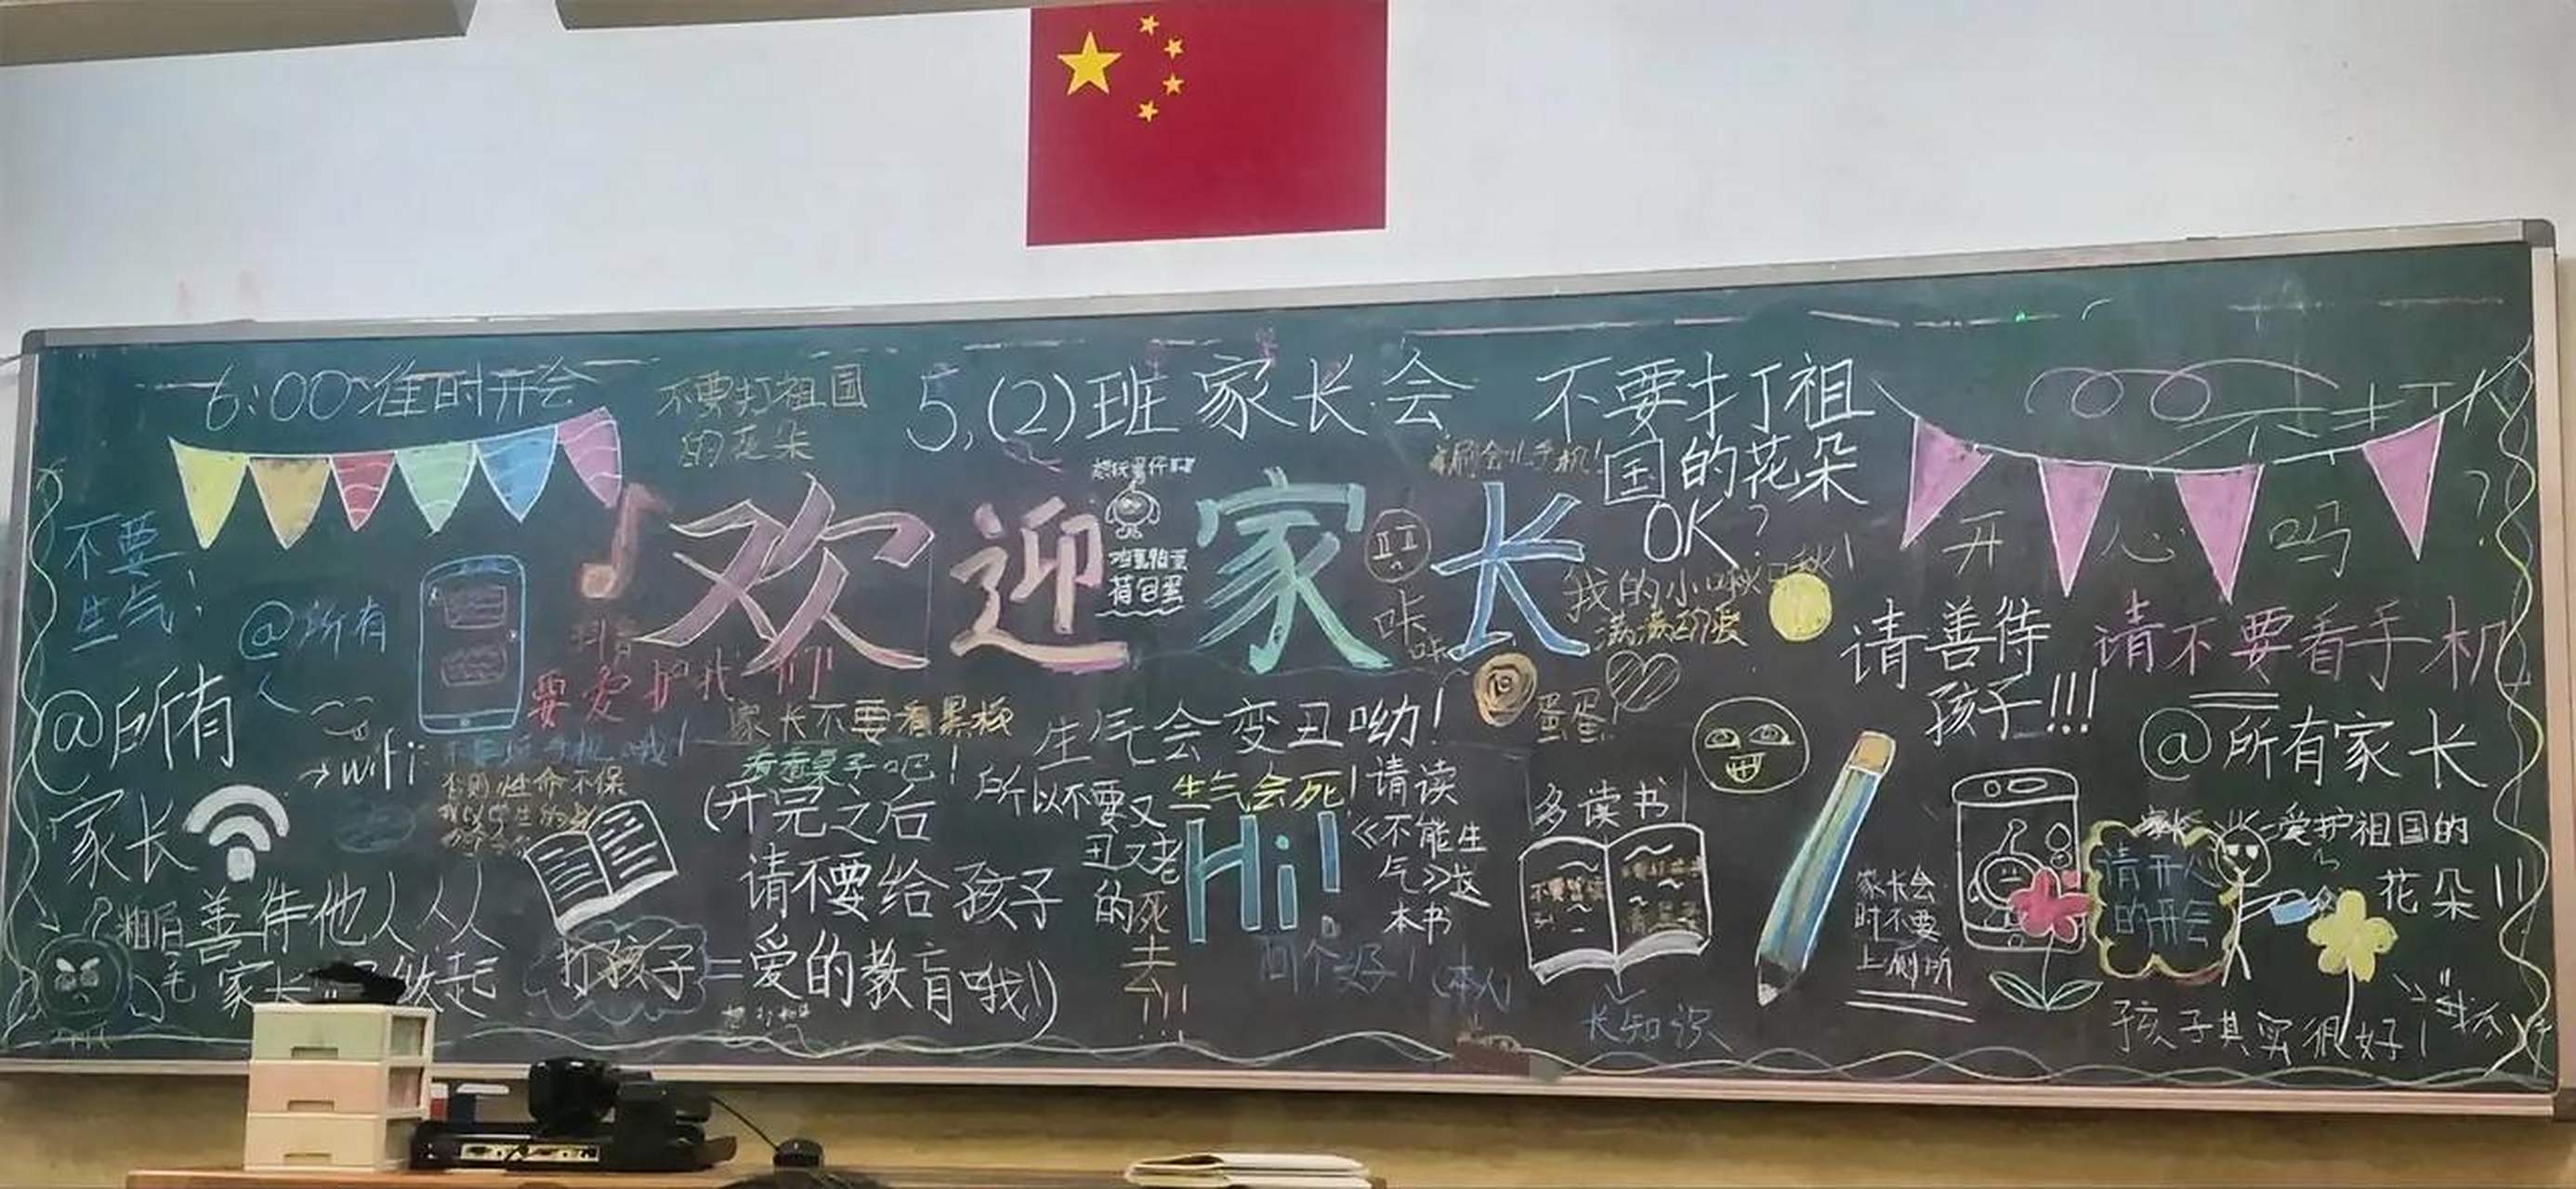 6:00准时开会
不要打祖国
的花朵
5,(2)班家长会
不要打祖
国的花朵
OK?
欢迎家长
荷包蛋
不要
生气!
@所有
人
@所有
家长
善待他人人人
wifi:
要爱护我们
否则性命不保
家长不要看黑板
看看桌子吧!
(开完之后
请不要给孩子
打孩子=爱的教育哦!)
生气会变丑呦!
所以不要又
丑又老
的死
去!!
生气会死!
Hi!
请读
《不能生
气》这
本书
咔
我的小啾啾!
满满的爱
蛋蛋!
多读书
长知识
开心吗?
请善待
孩子!!!
请不要看手机
@所有家长
家长会
时不要
上厕所
请开心
的开会
爱护祖国的
花朵!!
孩子其实很好!